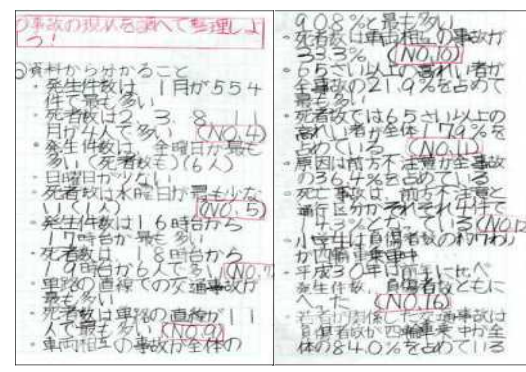 事故の現状を調べて整理しよ
う!
資料から分かること
・発生件数は、1月が554
件で最も多い
・死者数は2、3、8、11
月が4人で多い (NO.4)
・発生件数は、金曜日が最も
多い(死者数も)(6人)
・日曜日が少ない
・死者数は水曜日が最も少な
い(1人) (NO.5)
・発生件数は16時台から
17時台が最も多い
・死者数は、18時台から
19時台が6人で多い(NO.7)
・車路の直線での交通事故が
最も多い
・死者数は車路の直線が11
人で最も多い (NO.9)
・車両相互の事故が全体の
90.8%と最も多い
・死者数は車両相互の事故が
33.3% (NO.10)
・65さい以上の高れい者が
全事故の21.9%を占めて
最も多い
・死者数では65さい以上の
高れい者が全体の179%を
占めている (NO.11)
・原因は前方不注意が全事故
の36.4%を占めている
・死亡事故は、前方不注意と
通行区分がそれぞれ
14.3%となっている(NO.12
・小学生は負傷者数の約
が四輪車乗車中
・平成30年は前年に比べ
発生件数、負傷者数ともに
へった (NO.16)
・若者が関係した交通事故は
負傷者数が四輪車乗車中が全
体の84.0%を占めている